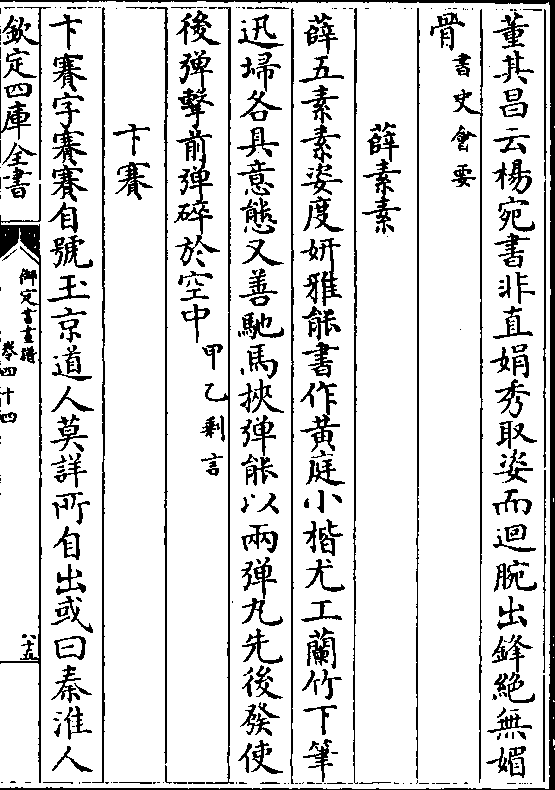 董其昌云楊宛書非直娟秀取姿而迴腕出鋒絕無媚
骨書史會要
薛素素
薛五素素姿度妍雅能書作黃庭小楷尤工蘭竹下筆
迅埽各具意態又善馳馬挾弹能以兩弹丸先後發使
後弹擊前弹碎於空中甲乙剩言
卞賽
卞賽字賽賽自號玉京道人莫詳所自出或曰秦淮人
欽定四庫全書
御定書畫譜
卷四十四
八十五